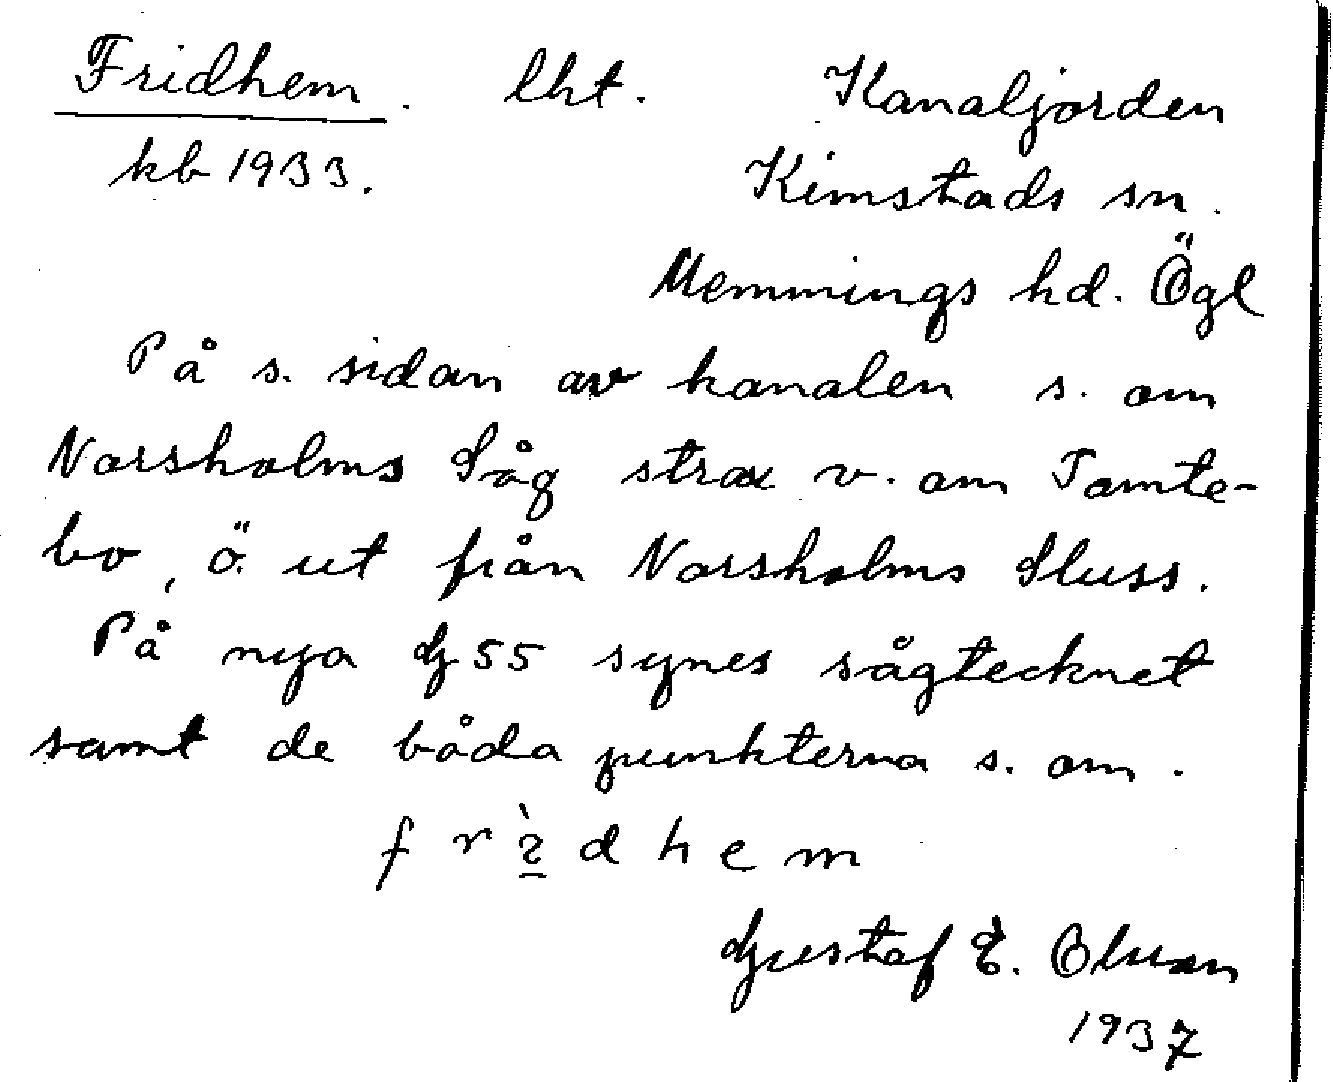 Fridhem. lht. Kanaljorden
kb 1933. Kimstads sn.
Memmings hd. Ögl
På s. sidan av kanalen s. om
Norsholms Såg strax v. om Tomte-
bo, ö. ut från Norsholms Sluss.
På nya G 55 synes sågtecknet
samt de båda punkterna s. om.
f r d h e m
Gustaf E.
1937